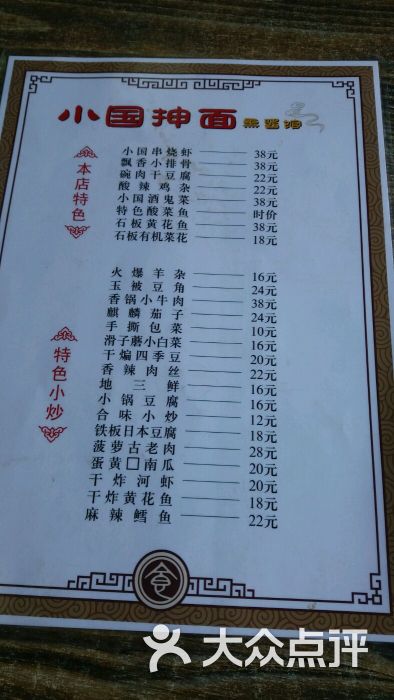 小国抻面
本店特色
小国串烧虾 38元
飘香小排骨 38元
碗肉干豆腐 22元
酸辣鸡杂 22元
小国酒鬼菜 38元
特色酸菜鱼 时价
石板黄花鱼 38元
石板有机菜花 18元
特色小炒
火爆羊杂 16元
玉被豆角 24元
香锅小牛肉 38元
麒麟茄子 24元
手撕包菜 10元
滑子蘑小白菜 16元
干煸四季豆 20元
香辣肉丝 22元
地三鲜 16元
小锅豆腐 16元
合味小炒 12元
铁板日本豆腐 18元
菠萝古老肉 28元
蛋黄□南瓜 20元
干炸河虾 20元
干炸黄花鱼 18元
麻辣鳕鱼 22元
食
大众点评